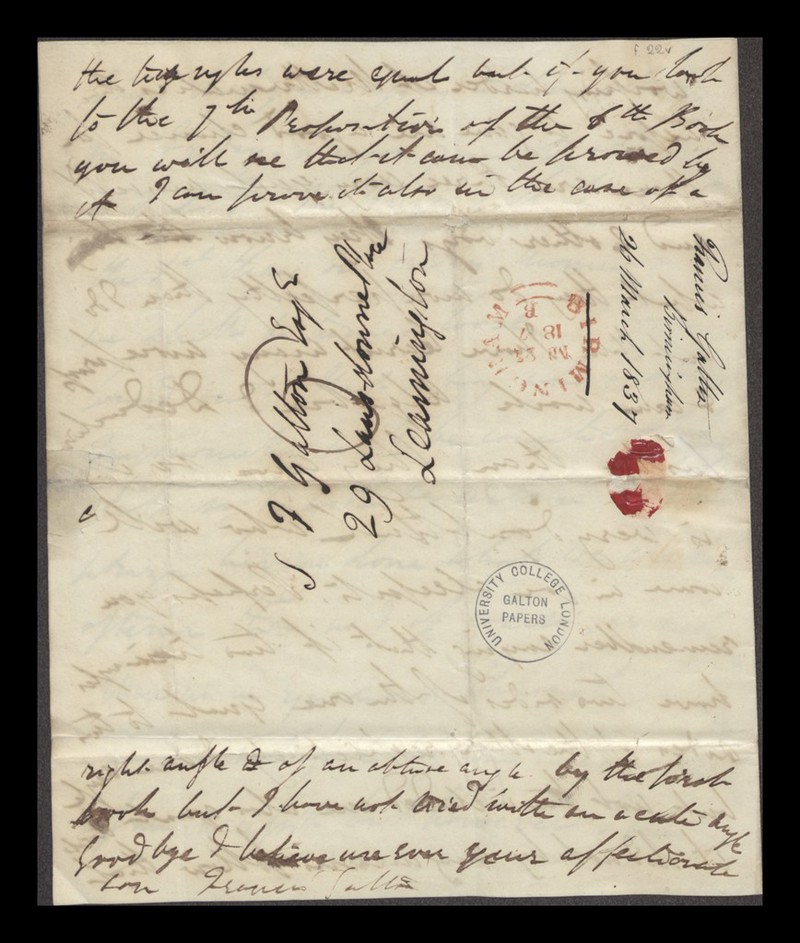 f 22v
the were equal but if you look
to the 7th Proposition of the 6th Book
you will see that it can be proved by
it I can prove it also in the case of a
S F Galton Esq
29 Lansdowne Place
Leamington
BIRMINGHAM
18
B
Francis Galton
Birmingham
26 March 1837
UNIVERSITY COLLEGE LONDON
GALTON
PAPERS
right angle & of an obtuse angle by the first
book but I have not tried with an acute angle
Good bye I believe me ever your affectionate
son Francis Galton